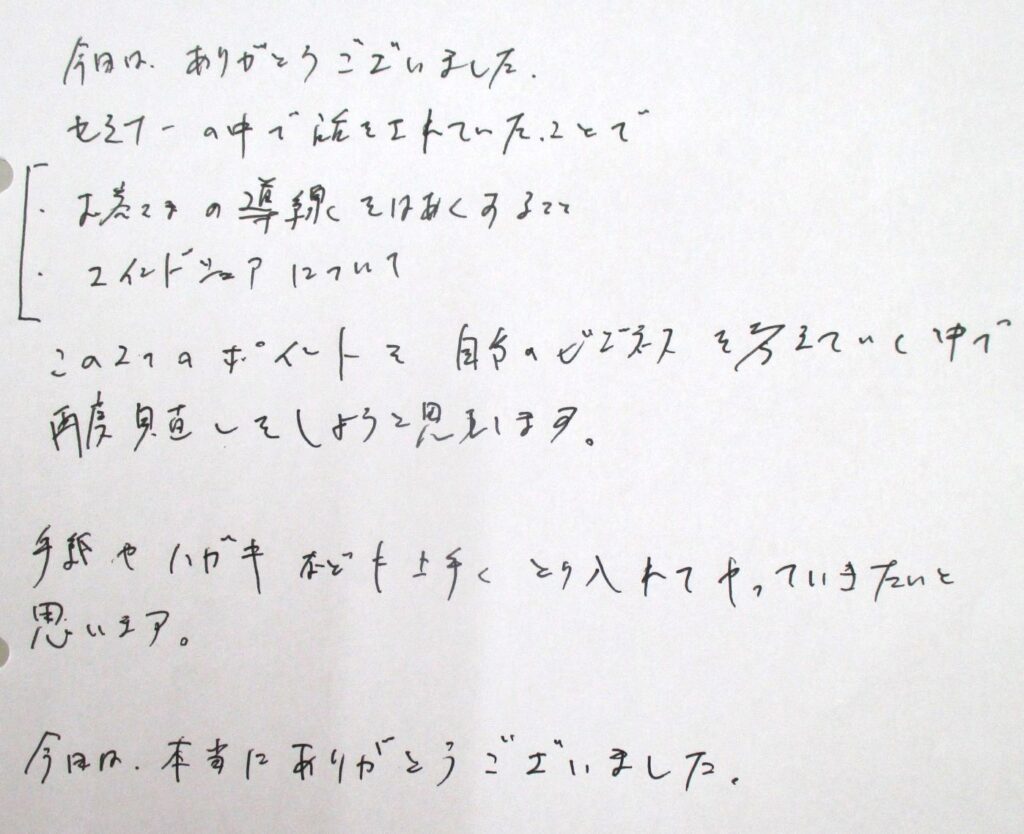 今日は、ありがとうございました。
セミナーの中で話をされていたことで
・お客さまの導線をはあくすること
・マインドシェアについて
この2つのポイントを自分のビジネスを考えていく中で
再度見直しをしようと思います。
手紙やハガキなども上手くとり入れてやっていきたいと
思います。
今日は、本当にありがとうございました。